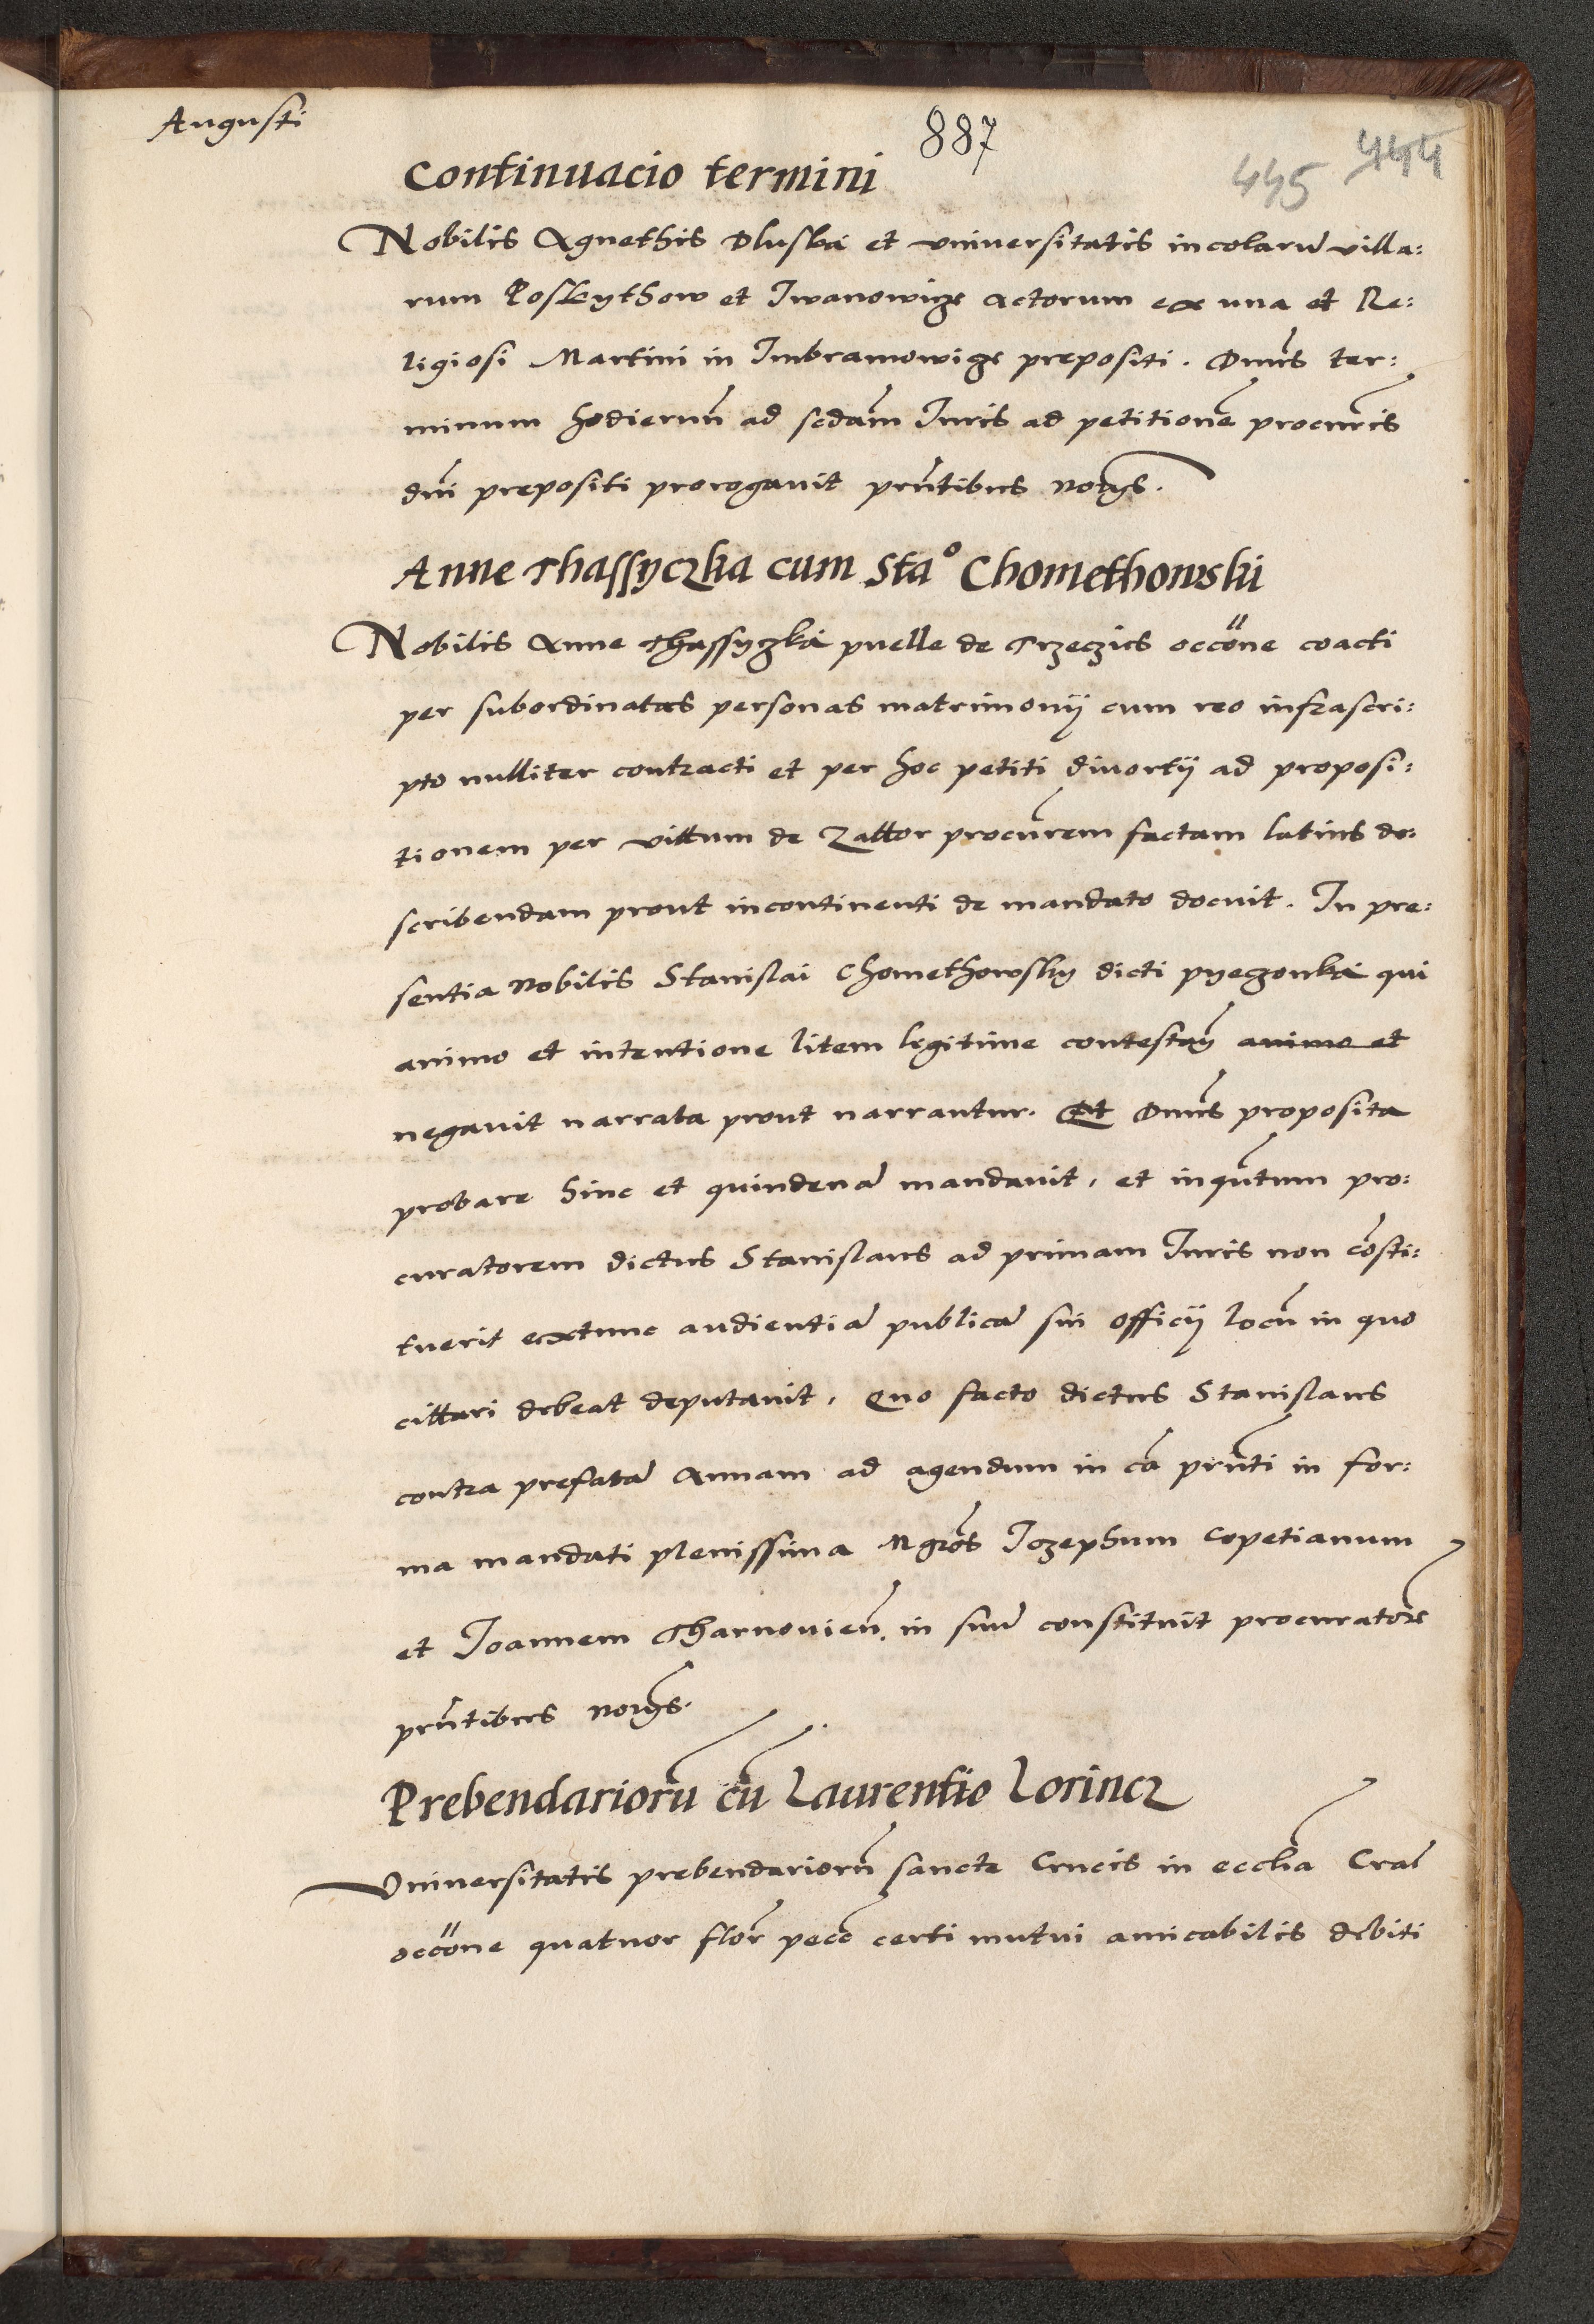 Augusti
887
445 444
Continuacio termini
Nobilis Agnethis Dluska et universitatis incolarũ villa:
rum Poskythow et Iwanowicze actorum ex una et Re:
ligiosi Martini in Imbramowicze prepositi. Dnũs ter:
minum hodiernũ ad scdam̃ Iuris ad petitionẽ procuris̃
dnĩ prepositi prorogavit prñtibus notys.
Anne Thassyczka cum Sta° Chomethowski
Nobilis Anne Thassyczka puelle de Trzeczies occõne coacti
per subordinatas personas matrimonij cum reo infrascri:
pto nulliter contracti et per hoc petiti divortij ad proposi:
tionem per vittum de Zattor procurẽm factam latius de:
scribendam prout incontinenti de mandato docuit. In pre:
sentia Nobilis Stanislai Chomethowsky dicti pyeczonka qui
animo et intentione litem legitime contestañ animo et
negavit narrata prout narrantur. Et Dnũs proposita
probare hinc et quindenã mandavit, et inqũtum pro:
curatorem dictus Stanislaus ad primam Iuris non cõsti:
tuerit extunc audientiã publicã sui officij locũ in quo
cittari debeat deputavit, Quo facto dictus Stanislaus
contra prefatã Annam ad agendum in cã prñti in for:
ma mandati plenissima Mgrõs Iozephum Copetianum
et Ioannem Tharnovieñ. in suũ constituit procuratorẽs
prñtibus notys.
Prebendariorũ cũ Laurentio Lorincz
Universitatis prebendariorũ sancte Crucis in ecclia Craĩ
occõne quatuor florẽ pecẽ certi mutui amicabilis debiti